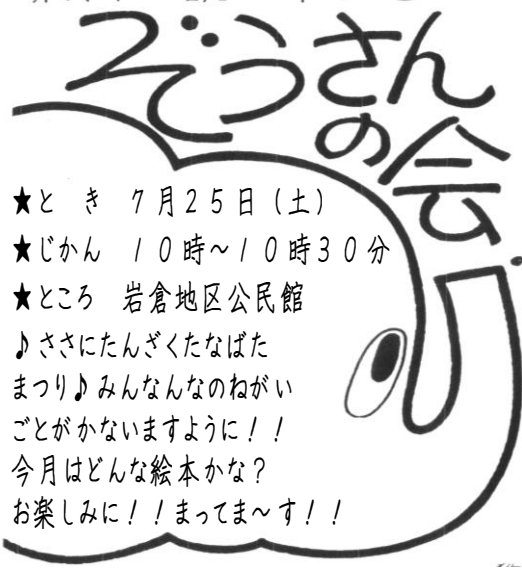 ぞうさん
の会
★と き 7月25日(土)
★じかん 10時~10時30分
★ところ 岩倉地区公民館
♪ささにたんざくたなばた
まつり♪みんなんなのねがい
ごとがかないますように!!
今月はどんな絵本かな?
お楽しみに!!まってま~す!!